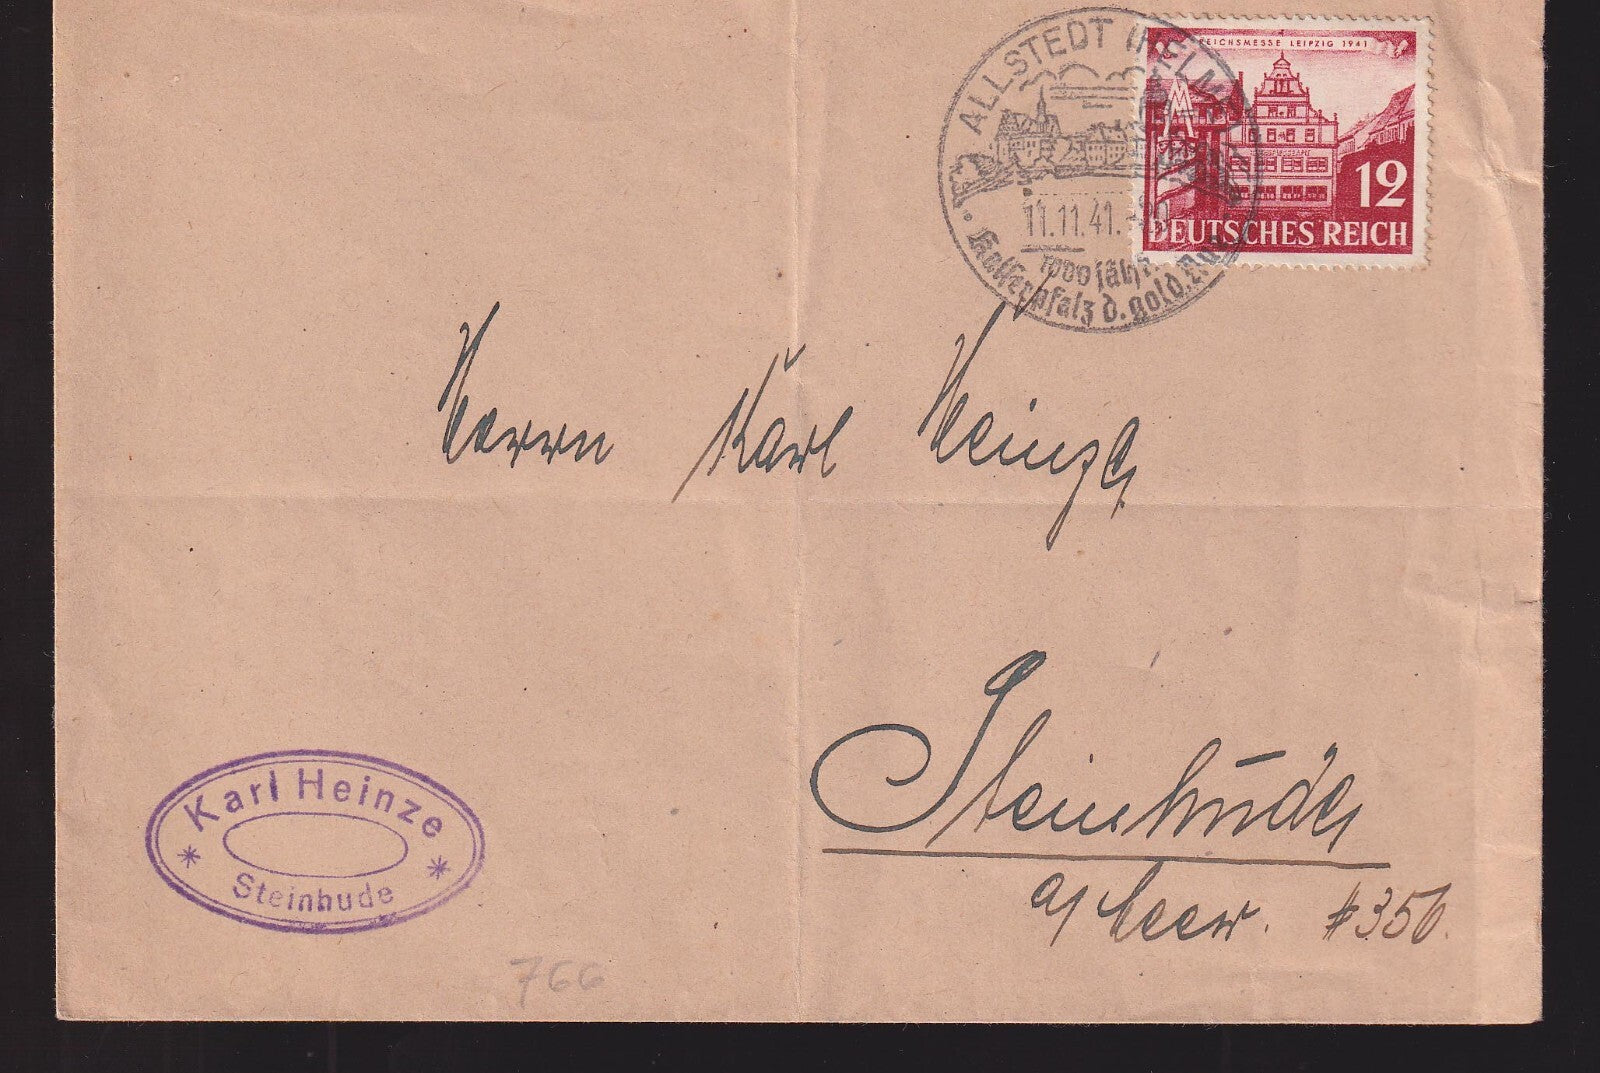 ALLSTEDT (HELME)
11.11.41.-20
1000 jähr.
Kaiserpfalz d. gold. Aue
REICHSMESSE LEIPZIG 1941
12
DEUTSCHES REICH
Herrn Karl Heinze
Steinhude
a/ Meer. #356.
Karl Heinze
Steinhude
766